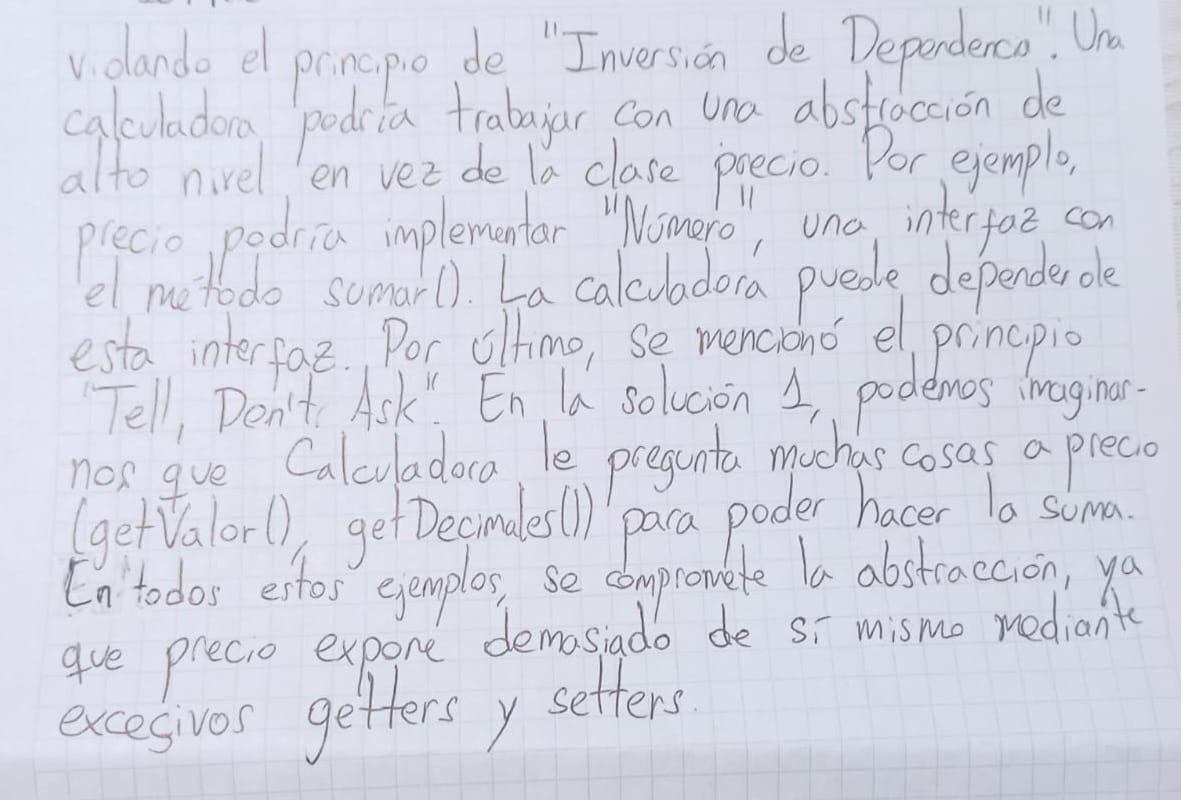 violando el principio de "Inversión de Dependenca". Una
calculadora podría trabajar con una abstracción de
alto nivel en vez de la clase precio. Por ejemplo,
precio podría implementar "Número", una interfaz con
el método sumar(). La calculadora puede depender de
esta interfaz. Por último, se mencionó el principio
"Tell, Don't Ask". En la solución 1, podemos imaginar-
nos que Calculadora le pregunta muchas cosas a precio
(getValor(), getDecimales()) para poder hacer la suma.
En todos estos ejemplos, se compromete la abstracción, ya
que precio expone demasiado de sí mismo mediante
excesivos getters y setters.